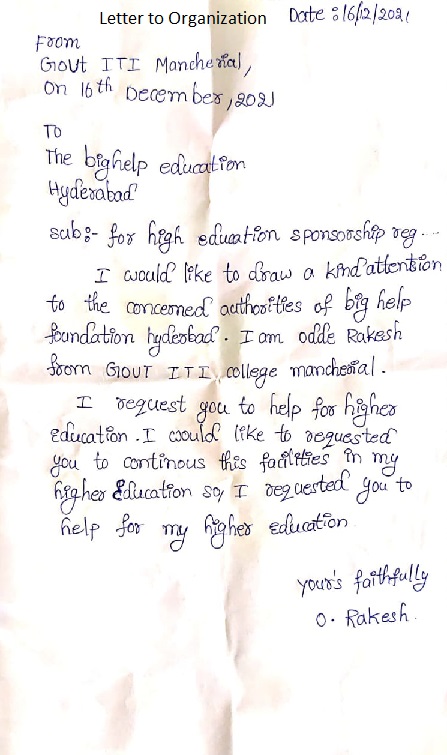 Letter to Organization Date : 16/12/2021
From
Govt ITI Mancherial,
On 16th December, 2021
To
The bighelp education
Hyderabad
sub:- for high education sponsorship reg...
I would like to draw a kind attention
to the concerned authorities of big help
foundation hyderbad. I am odde Rakesh
from GOVT ITI, college mancherial.
I request you to help for higher
education. I would like to requested
you to continous this facilities in my
higher Education so, I requested you to
help for my higher education
your's faithfully
O. Rakesh.